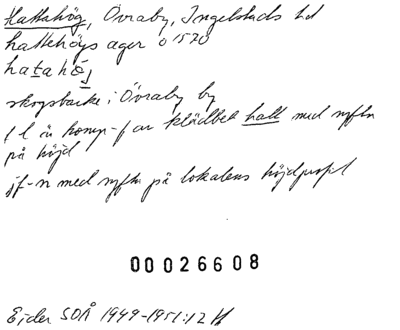 Hattahög, Övraby, Ingelstads hd
hattehögs ager o 1570
hatahǫj
skogsbacke i Övraby by
f l är komp-f av klädbet hatt med syftn
på höjd
jf-n med syftn på lokalens höjdprofil
00026608
Ejder SOÅ 1949-1951:12